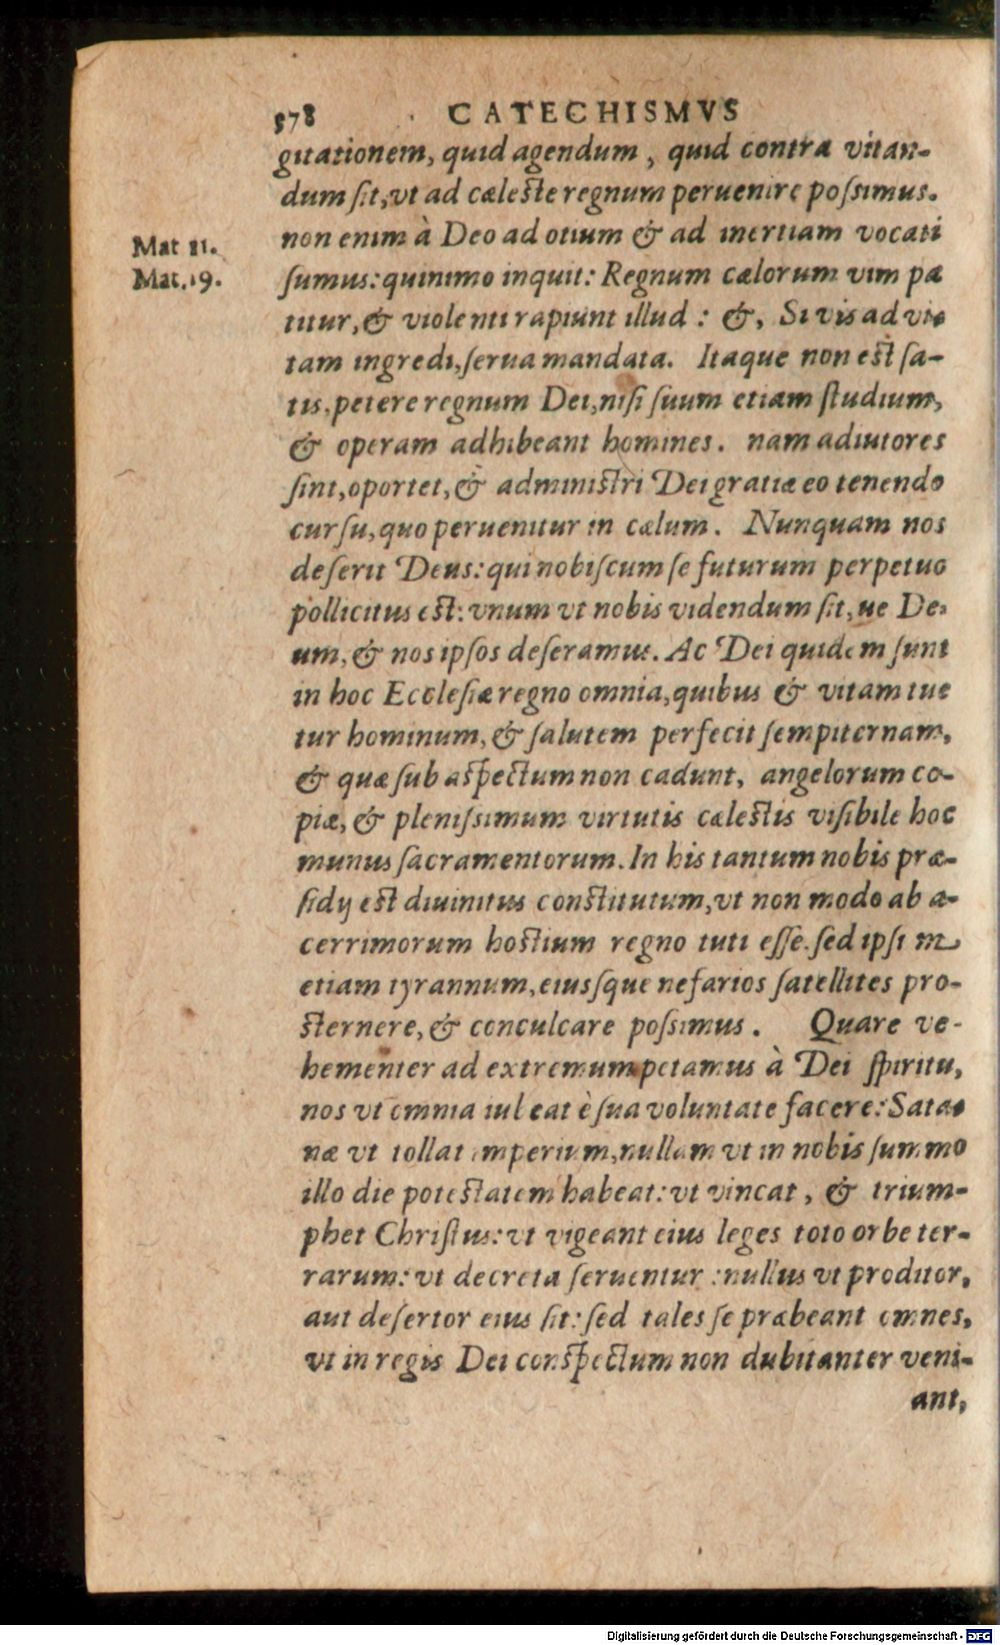 578 CATECHISMVS
gitationem, quid agendum, quid contra vitan-
dum sit, vt ad cæleste regnum peruenire possimus.
non enim à Deo ad otium & ad inertiam vocati
Mat 11.
sumus: quinimo inquit: Regnum cælorum vim pa
Mat. 19.
titur, & violenti rapiunt illud : &, Si vis ad vi-
tam ingredi, serua mandata. Itaque non est sa-
tis, petere regnum Dei, nisi suum etiam studium,
& operam adhibeant homines. nam adiutores
sint, oportet, & administri Dei gratiæ eo tenendo
cursu, quo peruenitur in cælum. Nunquam nos
deserit Deus: qui nobiscum se futurum perpetuo
pollicitus est: vnum vt nobis videndum sit, ne De-
um, & nos ipsos deseramus. Ac Dei quidem sunt
in hoc Ecclesiæ regno omnia, quibus & vitam tue
tur hominum, & salutem perfecit sempiternam,
& quæ sub aspectum non cadunt, angelorum co-
piæ, & plenissimum virtutis cælestis visibile hoc
munus sacramentorum. In his tantum nobis præ-
sidij est diuinitus constitutum, vt non modo ab a-
cerrimorum hostium regno tuti esse. sed ipsum
etiam tyrannum, eiusque nefarios satellites pro-
sternere, & conculcare possimus. Quare ve-
hementer ad extremum petamus à Dei spiritu,
nos vt omnia iubeat è sua voluntate facere: Sata-
næ vt tollat imperium, nullam vt in nobis summo
illo die potestatem habeat: vt vincat, & trium-
phet Christus: vt vigeant eius leges toto orbe ter-
rarum: vt decreta seruentur : nullus vt proditor,
aut desertor eius sit: sed tales se præbeant omnes,
vt in regis Dei conspectum non dubitanter veni-
ant,
Digitalisierung gefördert durch die Deutsche Forschungsgemeinschaft - DFG